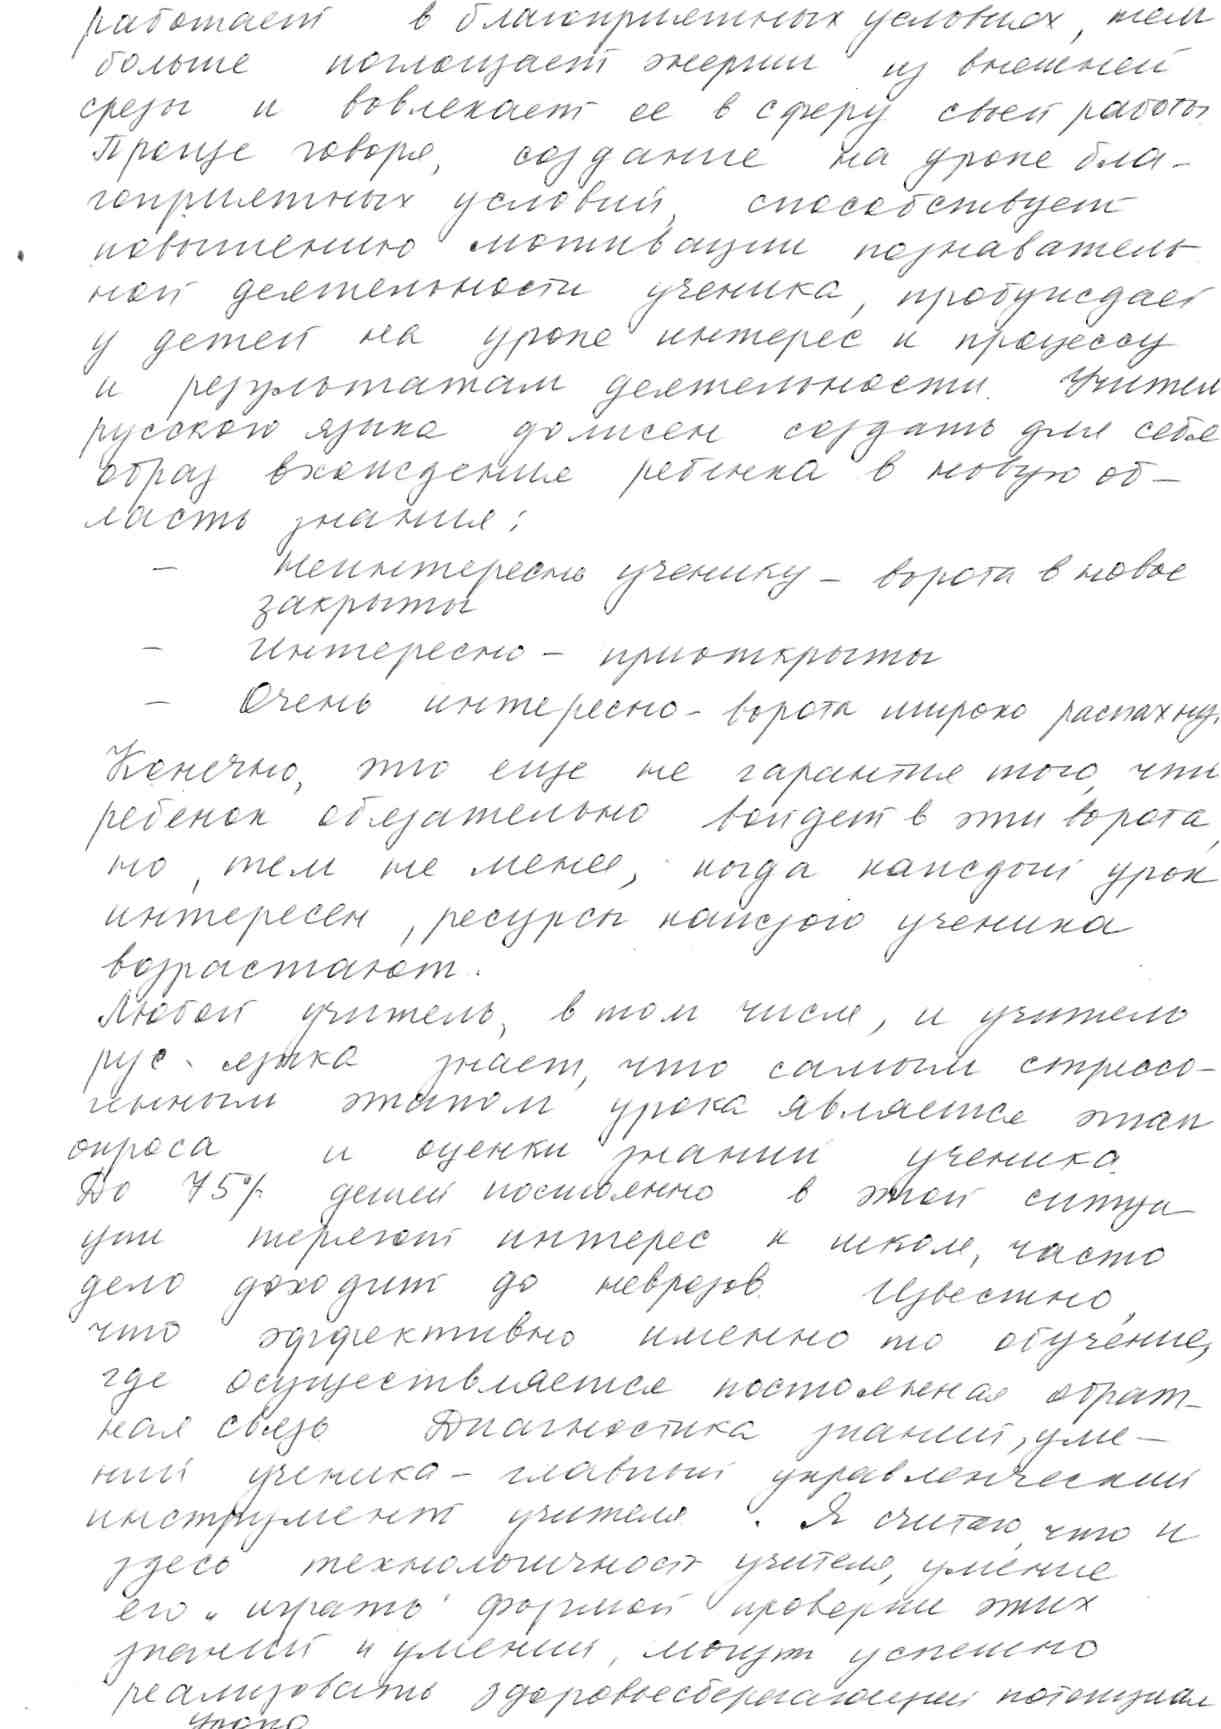 работает в благоприятных условиях, тем
больше поглощает энергии из внешней
среды и вовлекает ее в сферу своей работы
Проще говоря, создание на уроке бла-
гоприятных условий, способствует
повышению мотивации познаватель
ной деятельности ученика, пробуждает
у детей на уроке интерес к процессу
и результатам деятельности. Учител
русского языка должен создать для себя
образ вхождения ребенка в новую об-
ласть знания:
- Неинтересно ученику - ворота в новое
закрыты
- Интересно - приоткрыты
- Очень интересно - ворота широко распахну
Конечно, это еще не гарантия того, что
ребенок обязательно войдет в эти ворота,
но, тем не менее, когда каждый урок
интересен, ресурсы каждого ученика
возрастают.
Любой учитель, в том числе, и учитель
рус. языка знает, что самым стрессо-
генным этапом урока является этап
опроса и оценки знаний ученика.
До 75% детей постоянно в этой ситуа
ции теряют интерес к школе, часто
дело доходит до неврозов. Известно,
что эффективно именно то обучение,
где осуществляется постоянная обрат-
ная связь Диагностика знаний, уме-
ний ученика - главный управленческий
инструмент учителя. Я считаю, что и
здесь технологичность учителя, умение
его "играть" формой проверки этих
знаний и умений, могут успешно
реализовать здоровьесберегающий потенциал
урока